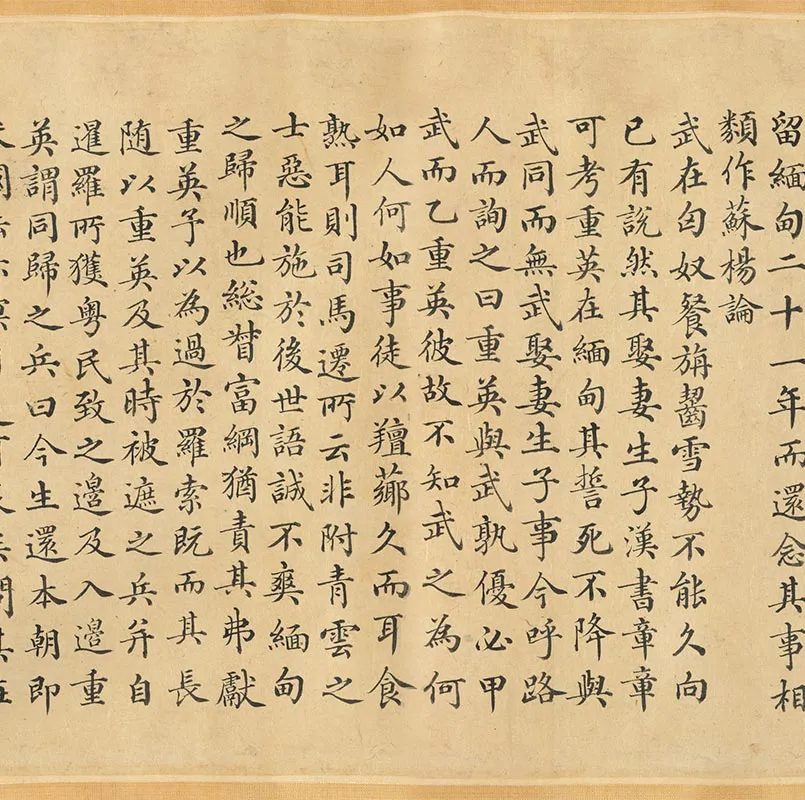 留緬甸二十一年而還念其事相
類作蘇楊論
武在匈奴餐旃齧雪勢不能久向
已有說然其娶妻生子漢書章章
可考重英在緬甸其誓死不降與
武同而無武娶妻生子事今呼路
人而詢之曰重英與武孰優必甲
武而乙重英彼故不知武之為何
如人何如事徒以羶薌久而耳食
熟耳則司馬遷所云非附青雲之
士惡能施於後世語誠不爽緬甸
之歸順也総督富綱猶責其弗獻
重英予以為過於羅索既而其長
随以重英及其時被遮之兵并自
暹羅所獲粤民致之邊及入邊重
英謂同歸之兵曰今生還本朝即